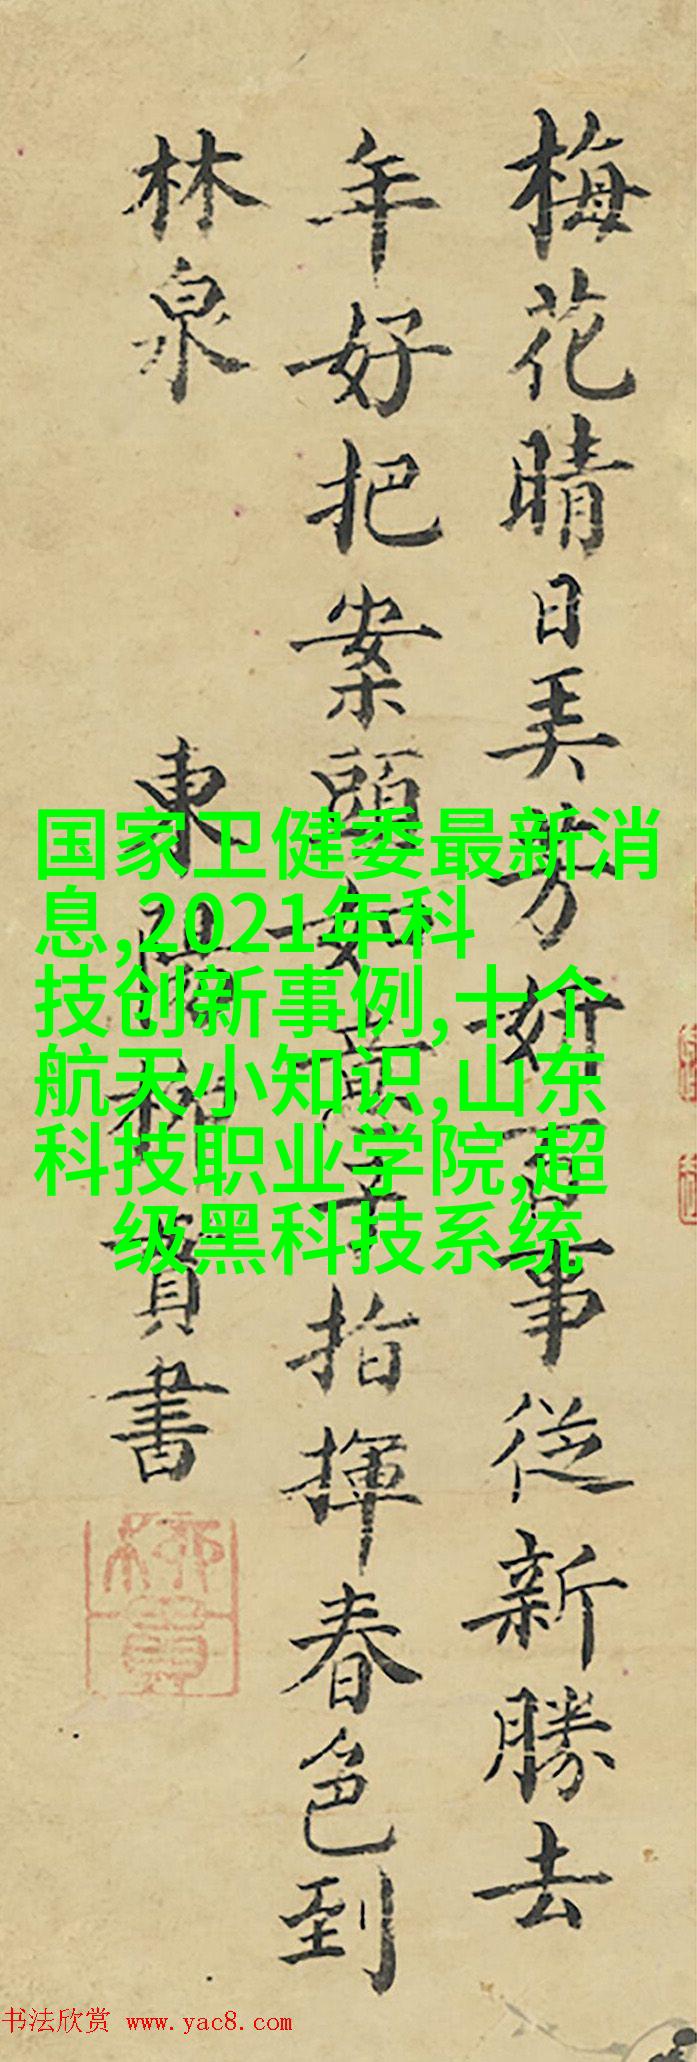 梅花晴日美芳妍百事従新勝去
年好把案頭如意子指揮春色到
林泉
東陽柳貫書
柳貫
国家卫健委最新消
息,2021年科
技创新事例,十个
航天小知识,山东
科技职业学院,超
级黑科技系统
书法欣赏 www.yac8.com